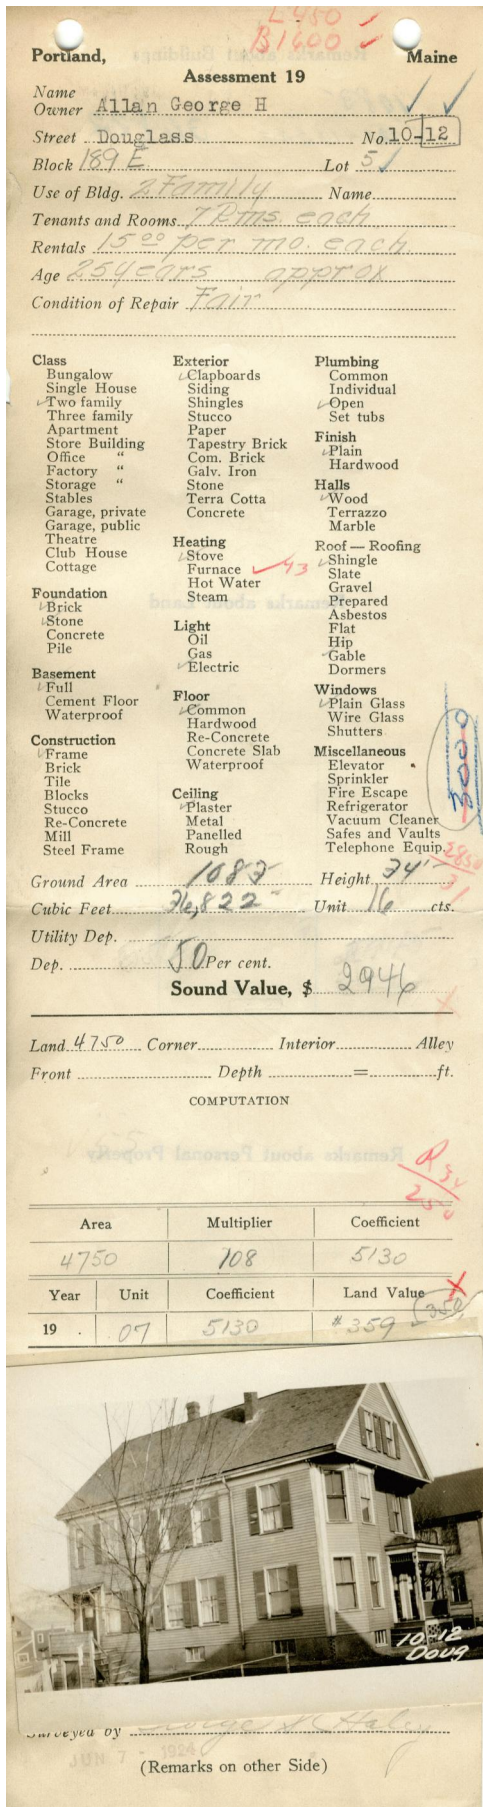 L 450 ✓
B1600 ✓
Portland, Maine
Assessment 19
Name
Owner Allan George H
Street Douglass No. 10-12
Block 189 E Lot 5
Use of Bldg. 2 Family Name
Tenants and Rooms 7 Rms. each
Rentals 15 00 per mo. each.
Age 25 years approx
Condition of Repair Fair
Class
Bungalow
Single House
✓Two family
Three family
Apartment
Store Building
Office "
Factory "
Storage "
Stables
Garage, private
Garage, public
Theatre
Club House
Cottage
Foundation
✓Brick
✓Stone
Concrete
Pile
Basement
✓Full
Cement Floor
Waterproof
Construction
✓Frame
Brick
Tile
Blocks
Stucco
Re-Concrete
Mill
Steel Frame
Exterior
✓Clapboards
Siding
Shingles
Stucco
Paper
Tapestry Brick
Com. Brick
Galv. Iron
Stone
Terra Cotta
Concrete
Heating
✓Stove
Furnace ✓43
Hot Water
Steam
Light
Oil
Gas
✓Electric
Floor
✓Common
Hardwood
Re-Concrete
Concrete Slab
Waterproof
Ceiling
✓Plaster
Metal
Panelled
Rough
Plumbing
Common
Individual
✓Open
Set tubs
Finish
✓Plain
Hardwood
Halls
✓Wood
Terrazzo
Marble
Roof — Roofing
✓Shingle
Slate
Gravel
Prepared
Asbestos
Flat
Hip
✓Gable
Dormers
Windows
✓Plain Glass
Wire Glass
Shutters
Miscellaneous
Elevator
Sprinkler
Fire Escape
Refrigerator
Vacuum Cleaner
Safes and Vaults
Telephone Equip.
3000
2850
31
Ground Area 1083 Height 34'
Cubic Feet 36,822 Unit 16 cts.
Utility Dep.
Dep. 50 Per cent.
Sound Value, $ 2946
Land 4750 Corner Interior Alley
Front Depth = ft.
COMPUTATION
R 34
250
Area Multiplier Coefficient
4750 108 5130
Year Unit Coefficient Land Value
19 . 07 5130 $359 350
10-12
Doug
Surveyed by George H Haley
JUN 7 - 1924
(Remarks on other Side)